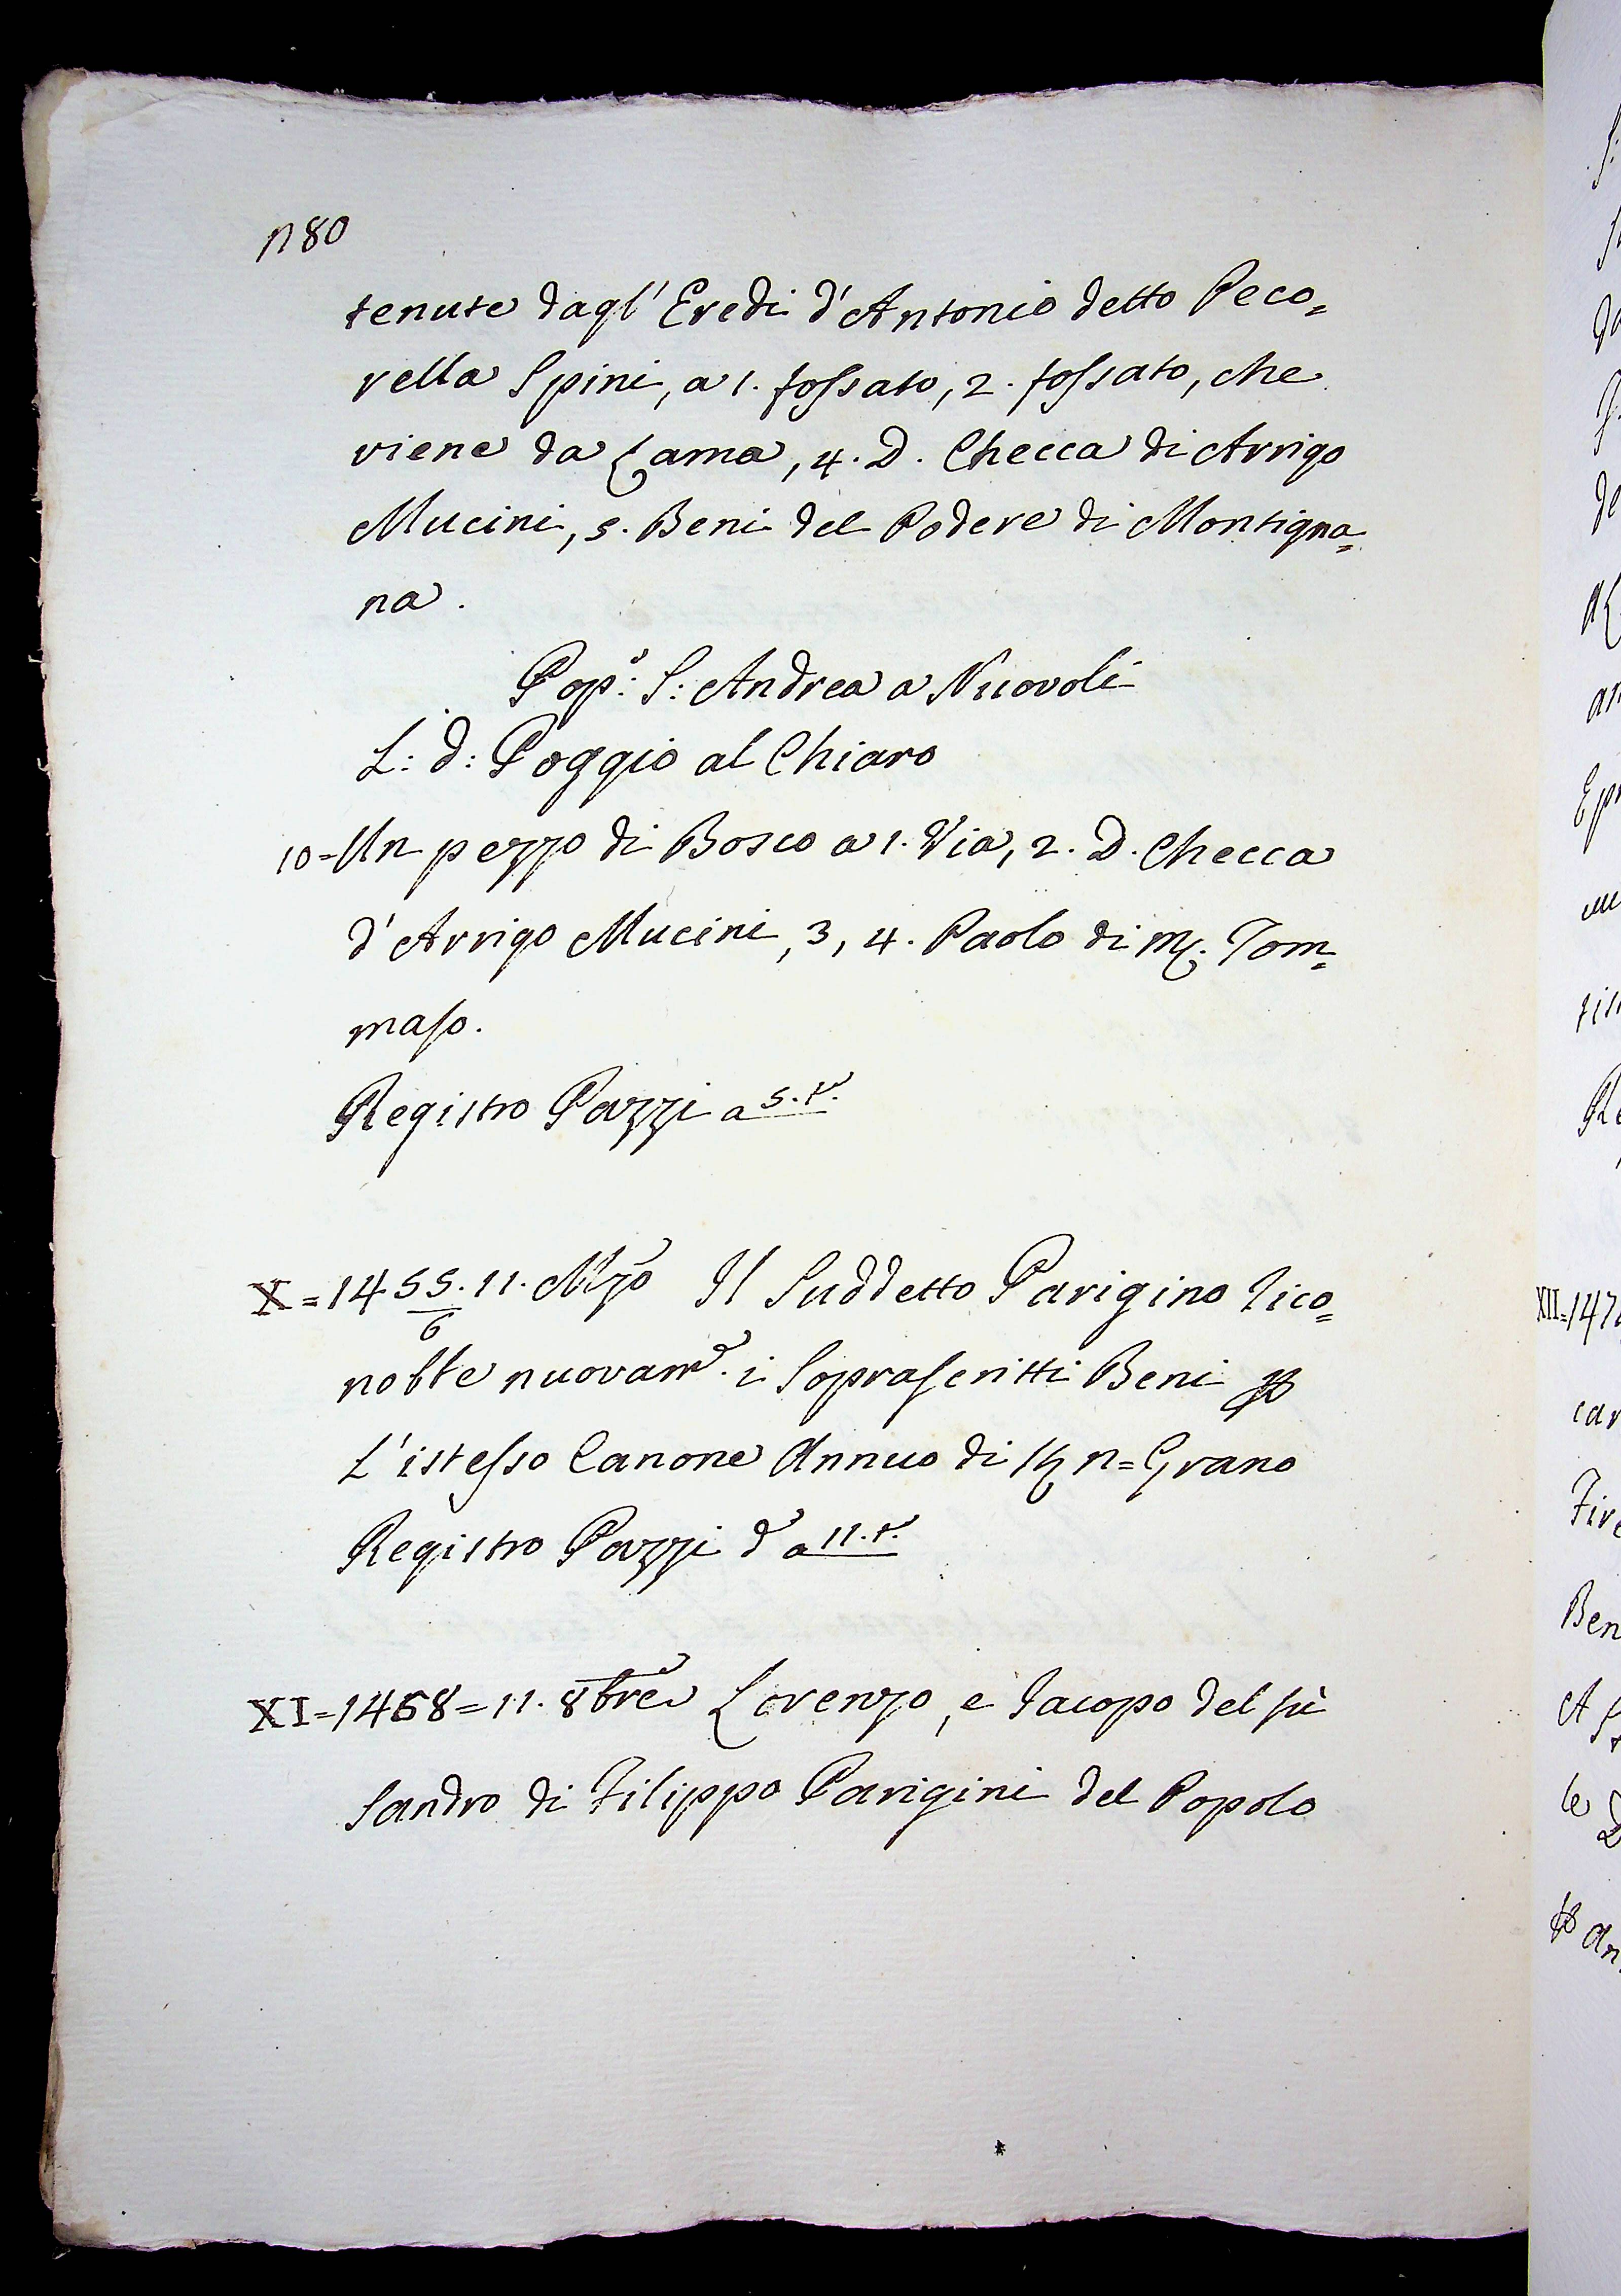 n80
tenute dagl' Eredi d'Antonio detto Peco=
rella Spini, a 1. fossato, 2. fossato, che
viene da Lama, 4. D. Checca di Arrigo
Mucini, 5. Beni del Podere di Montigna=
na.
Pop.º: S: Andrea a Nuovoli
L: d: Poggio al Chiaro
10=Un pezzo di Bosco a 1. Via, 2. D. Checca
d'Arrigo Mucini, 3, 4. Paolo di M. Tom=
maso.
Registro Pazzi a 5.t.
X=1455.11. Mzo Il Suddetto Parigino rico=
6
nobbe nuovam.e i Soprascritti Beni p
L'istesso Canone Annuo di n= Grano
Registro Pazzi d.o a 11.t.
XI=1468=11. 8bre Lorenzo, e Iacopo del fù
Sandro di Filippo Parigini del Popolo